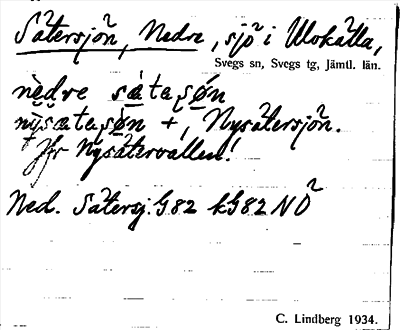 Sätersjön, Nedre, sjö i Ulvkälla,
Svegs sn, Svegs tg, Jämtl. län.
nèdre sátaşøn
nỳsætaşøn +, Nysätersjön.
Jfr Nysätervallen!
Ned. Sätersj. G82 kG82 NÖ
C. Lindberg 1934.